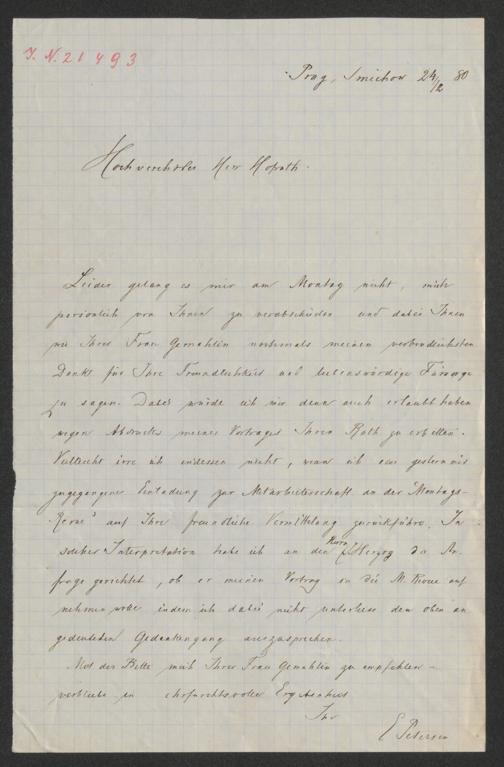 J. N. 21493
Prag, Smichow 24/2 80
Hochverehrter Herr Hofrath.
Leider gelang es mir am Montag nicht, mich
persönlich von Ihnen zu verabschieden und dabei Ihnen
wie Ihrer Frau Gemahlin nochmals meinen verbindlichsten
Dank für Ihre Freundlichkeit und liebenswürdige Fürsorge
zu sagen. Dabei würde ich mir denn auch erlaubt haben
wegen Abdruckes meines Vortrages Ihren Rath zu erbitten.
Vielleicht irre ich indessen nicht, wenn ich eine gestern mir
zugegangene Einladung zur Mitarbeiterschaft an der "Montags-
Revue" auf Ihre freundliche Vermittelung zurückführe. In
solcher Interpretation habe ich an den Herrn Herzog die An-
frage gerichtet, ob er meinen Vortrag in die M. Revue auf
nehmen wolle indem ich dabei nicht unterliess den oben an
gedeuteten Gedankengang auszusprechen.
Mit der Bitte mich Ihrer Frau Gemahlin zu empfehlen –
verbleibe in ehrfurchtsvoller Ergebenheit
Ihr
E Petersen